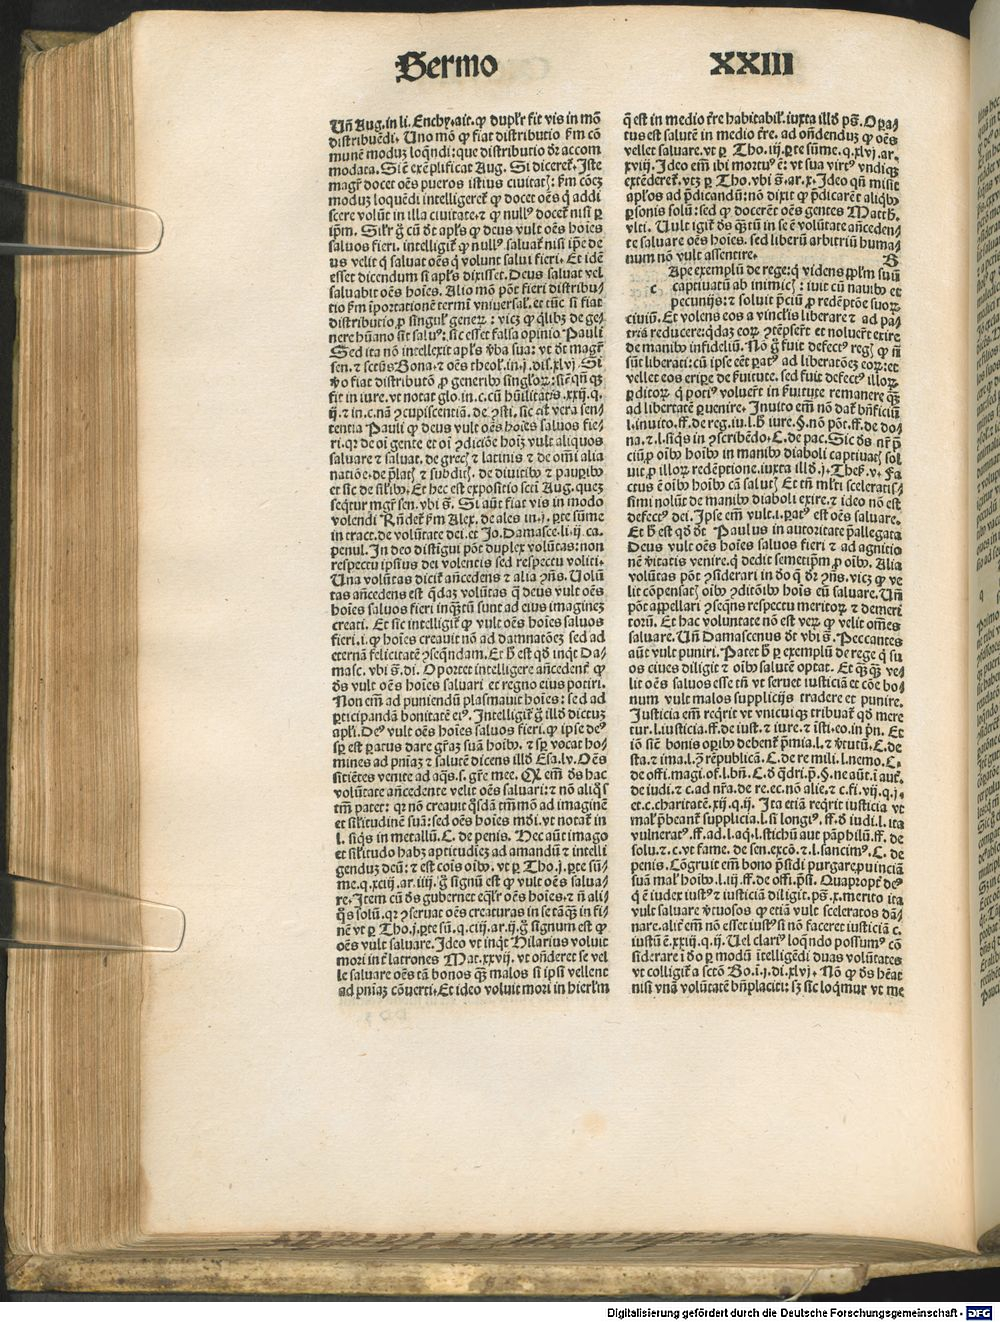 Sermo XXIII
Uñ Aug. in li. Enchy. ait. ꝙ duplr̄ fit vis in mō
distribuẽdi. Uno mõ ꝙ fiat distributio ẜm cõ
munẽ moduꝫ loq̃ndi: que distributio dr̃ accom
modata. Si ẽ exẽplificat Aug. Si diceret̃. Iste
magr̃ docet oẽs pueros istius ciuitatꝭ: ẜm cõeꝫ
moduꝫ loquẽdi intelligeret̃ ꝙ docet oẽs q̃ addi
scere volũt in illa ciuitate. ⁊ ꝙ nullꝰ docet̃ nisi ꝑ
ip̃m. Silr̃ g̃ cũ dt̃ apl̃s ꝙ deus vult oẽs hoĩes
saluos fieri. intelligit̃ ꝙ nullꝰ saluat̃ nisi ip̃e de
us velit q̃ saluat oẽs q̃ volunt salui fieri. Et idẽ
esset dicendum si apl̃s dixisset. Deus saluat vel
saluabit oẽs hoĩes. Alio mõ põt fieri distribu/
tio ẜm ĩportationẽ termĩ vniuersal̃. et tũc si fiat
distributio ꝓ singul̃ generꝝ: vicꝫ ꝙ q̃libꝫ de ge/
nere hũano sit saluꝰ: sic esset falsa opinio Pauli
Sed ita nõ intellexit apl̃s v̾ba sua: vt dt̃ magr̃
sen. ⁊ sctũs Bona. ⁊ oẽs theol̃. in .j. dis. xlvj. Si
v̾o fiat distributõ ꝓ generibꝰ singl̃oꝝ: siẽ qñqꝫ
fit in iure. vt notat glo. in .c. cũ hũilitatis. xxij. q.
ij. ⁊ in .c. nã ꝯcupiscentiã. de ꝯsti. sic est vera sen/
tentia Pauli ꝙ deus vult oẽs hoĩes saluos fie/
ri. qꝛ de oĩ gente et oĩ ꝯdiciõe hoĩꝫ vult aliquos
saluare ⁊ saluat. de grecꝭ ⁊ latinis ⁊ de omĩ alia
natiõe. de p̃latꝭ ⁊ subditꝭ. de diuitibꝰ ⁊ pauꝑibꝰ
et sic de sil̃ibꝰ. Et hec est expositio sctĩ Aug. queꝫ
seqt̃ur mgr̃ sen. vbi s̃. Si aũt fiat vis in modo
volendi Rñdet̃ ẜm Alex. de ales in .j. ꝑte sũme
in tract. de volũtate dei. et Jo. Damasce. li. ij. ca.
penul. In deo distĩgui põt duplex volũtas: non
respectu ipsius dei volentis sed respectu voliti.
Una volũtas dicit̃ añcedens ⁊ alia ꝯñs. Uolũ
tas añcedens est q̃daꝫ volũtas q̃ deus vult oẽs
hoĩes saluos fieri inqꝫtũ sunt ad eius imagineꝫ
creati. Et sic intelligit̃ ꝙ vult oẽs hoĩes saluos
fieri. i. ꝙ hoĩes creauit nõ ad damnatõeꝫ sed ad
eternã felicitatẽ ꝯseq̃ndam. Et h̃ est qd̃ inqt̃ Da/
masc. vbi s̃. di. Oportet intelligere añcedent̃ ꝙ
d̃s vult oẽs hoĩes saluari et regno eius potiri.
Non em̃ ad puniendũ plasmauit hoĩes: sed ad
ꝑticipandã bonitatẽ eiꝰ. Intelligit̃ g̃ illd̃ dictuꝫ
apl̃i. Deꝰ vult oẽs hoĩes saluos fieri. ꝙ ipse deꝰ
sp̃ est ꝑatus dare gr̃aꝫ suã hoĩbꝰ. ⁊ sp̃ vocat ho/
mines ad pñiaꝫ ⁊ salutẽ dicens illd̃ Esa. lv. Oẽs
sitiẽtes venite ad aq̃s. s. gr̃e mee. Qꝛ em̃ d̃s hac
volũtate añcedente velit oẽs saluari: ⁊ nõ aliq̃s
tm̃ patet: qꝛ nõ creauit q̃sdã tm̃mõ ad imaginẽ
et sil̃itudinẽ suã: sed oẽs hoĩes mõi. vt notat̃ in
l. siq̃s in metallũ. C. de penis. Hec aũt imago
et sil̃itudo habꝫ aptitudieꝫ ad amandũ ⁊ intelli
genduꝫ deũ: ⁊ est cõis oĩbꝰ. vt ꝑ Tho. j. ꝑte sũ/
me. q. xciij. ar. iiij. g̃ signũ est ꝙ vult oẽs salua/
re. Item cũ d̃s gubernet eq̃lr̃ oẽs hoĩes. ⁊ ñ ali/
q̃s solũ. qꝛ ꝯseruat oẽs creaturas in se tãqꝫ in fi/
nẽ vt ꝑ Tho. j. ꝑte sũ. q. ciij. ar. ij. g̃ signum est ꝙ
oẽs vult saluare. Ideo vt inqt̃ Hilarius voluit
mori int̃ latrones Mat. xxvij. vt oñderet se vel
le saluare oẽs tã bonos qꝫ malos si ipsi vellent
ad pñiaꝫ cõuerti. Et ideo voluit mori in hierl̃m
q̃ est in medio t̾re habitabil̃. iuxta illd̃ ps̃. Oꝑa/
tus est salutẽ in medio t̾re. ad oñdenduꝫ ꝙ oẽs
vellet saluare. vt ꝑ Tho. iij. ꝑte sũme. q. xlvj. ar.
xviij. Ideo em̃ ibi mortuꝰ ẽ: vt sua virtꝰ vndiqꝫ
extẽderet̃. vtꝫ ꝑ Tho. vbi s̃. ar. x. Ideo qñ misit
apl̃os ad p̃dicandũ: nõ dixit ꝙ p̃dicarẽt aliqbꝰ
ꝑsonis solũ: sed ꝙ docerẽt oẽs gentes Matth̃.
vlti. Uult igit̃ d̃s qꝫtũ in se ẽ volũtate añceden/
te saluare oẽs hoĩes. sed liberũ arbitriũ huma/
num nõ vult assentire. B
Ape exemplũ de rege: q̃ videns ppl̃m suũ
c captiuatũ ab inimicꝭ: iuit cũ nauibꝰ et
pecunijs: ⁊ soluit p̃ciũ ꝓ redẽptõe suoꝝ
ciuiũ. Et volens eos a vinclis liberare ⁊ ad pa/
triã reducere: q̃daꝫ eoꝝ ꝯtẽpser̃t et noluer̃t exire
de manibꝰ infideliũ. Nõ g̃ fuit defectꝰ regꝭ ꝙ ñ
sũt liberati: cũ ipse eẽt ꝑatꝰ ad liberatõeꝫ eoꝝ: et
vellet eos eriꝑe de ẜuitute. sed fuit defectꝰ illoꝝ
ꝑditoꝝ q̃ potiꝰ voluer̃t in ẜuitute remanere qꝫ
ad libertatẽ ꝑuenire. Inuito em̃ nõ dat̃ bñficiũ
l. inuito. ff. de reg. iu. l. h̃ iure. §. nõ põt. ff. de do/
na. ⁊. l. siq̃s in ꝯscribẽdo. C. de pac. Sic d̃s nr̃ p̃
ciũ ꝓ oĩbꝰ hoĩbꝰ in manibꝰ diaboli captiuatꝭ sol
uit ꝓ illoꝝ redẽptione. iuxta illd̃ .j. Thess. v. Fa
ctus ẽ oĩbꝰ hoĩbꝰ cã salutꝭ Et tñ ml̃ti sceleratis/
simi nolũt de manibꝰ diaboli exire. ⁊ ideo nõ est
defectꝰ dei. Ipse em̃ vult. i. ꝑatꝰ est oẽs saluare.
Et h̃ est qd̃ dt̃ Paulus in autoritate p̃allegata
Deus vult oẽs hoĩes saluos fieri ⁊ ad agnitio
nẽ v̾itatis venire. q̃ dedit semetip̃m ꝓ oĩbꝰ. Alia
volũtas põt ꝯsiderari in d̾o q̃ dt̃ ꝯñs. vicꝫ ꝙ ve
lit cõpensatꝭ oĩbꝰ ꝯditõibꝰ hoĩs eũ saluare. Uñ
põt appellari ꝯseq̃ns respectu meritoꝝ ⁊ demeri
torũ. Et hac voluntate nõ est veꝝ ꝙ velit oẽs
saluare. Uñ Damascenus dt̃ vbi s̃. Peccantes
aũt vult puniri. Patet h̃ ꝑ exemplũ de rege q̃ su
os ciues diligit ⁊ oĩbꝰ salutẽ optat. Et qꝫqꝫ ve/
lit oẽs saluos esse tñ vt seruet iusticiã et cõe bo/
num vult malos supplicijs tradere et punire.
Iusticia em̃ req̃rit vt vnicuiqꝫ tribuat̃ qd̃ mere
tur. l. iusticia. ff. de iust. ⁊ iure. ⁊ ĩsti. eo. in p̃n. Et
iõ siẽ bonis oꝑibꝰ debent̃ p̃mia. l. ⁊ v̾tutũ. C. de
sta. ⁊ ima. l. ꝯ rẽpublicã. C. de re mili. l. nemo. C.
de offi. magi. of. l. bñ. C. d̾ q̃dri. p̃. §. ne aũt. ĩ aut̃.
de iudi. ⁊ c. ad nr̃a. de re. ec. nõ alie. ⁊ c. fi. vij. q. j.
et. c. charitatẽ. xij. q. ij. Ita etiã req̃rit iusticia vt
mal̃ p̃beant̃ supplicia. l. si longiꝰ. ff. d̾ iudi. l. ita
vulneratꝰ. ff. ad. l. aq̃. l. stichũ aut pãphilũ. ff. de
solu. ⁊. c. vt fame. de sen. excõ. ⁊. l. sancimꝰ. C. de
penis. Cõgruit em̃ bono p̃sidi purgare ꝓuinciã
suã mal̃ hoĩbꝰ. l. iij. ff. de offi. p̃si. Quapropt̃ deꝰ
q̃ ẽ iudex iustꝰ ⁊ iusticiã diligit. ps̃. x. merito ita
vult saluare v̾tuosos ꝙ etiã vult sceleratos dã/
nare. alit̃ em̃ nõ esset iustꝰ si nõ faceret iusticiã c.
iustũ ẽ. xxiij. q. ij. Uel clariꝰ loq̃ndo possumꝰ cõ
siderare ĩ d̾o ꝑ modũ ĩtelligẽdi duas volũtates
vt colligit̃ a sctõ Bo. i. j. di. xlvj. Nõ ꝙ d̃s hẽat
nisi vnã volũtatẽ bñplaciti: sꝫ sic loq̃mur vt me
Digitalisierung gefördert durch die Deutsche Forschungsgemeinschaft - DFG